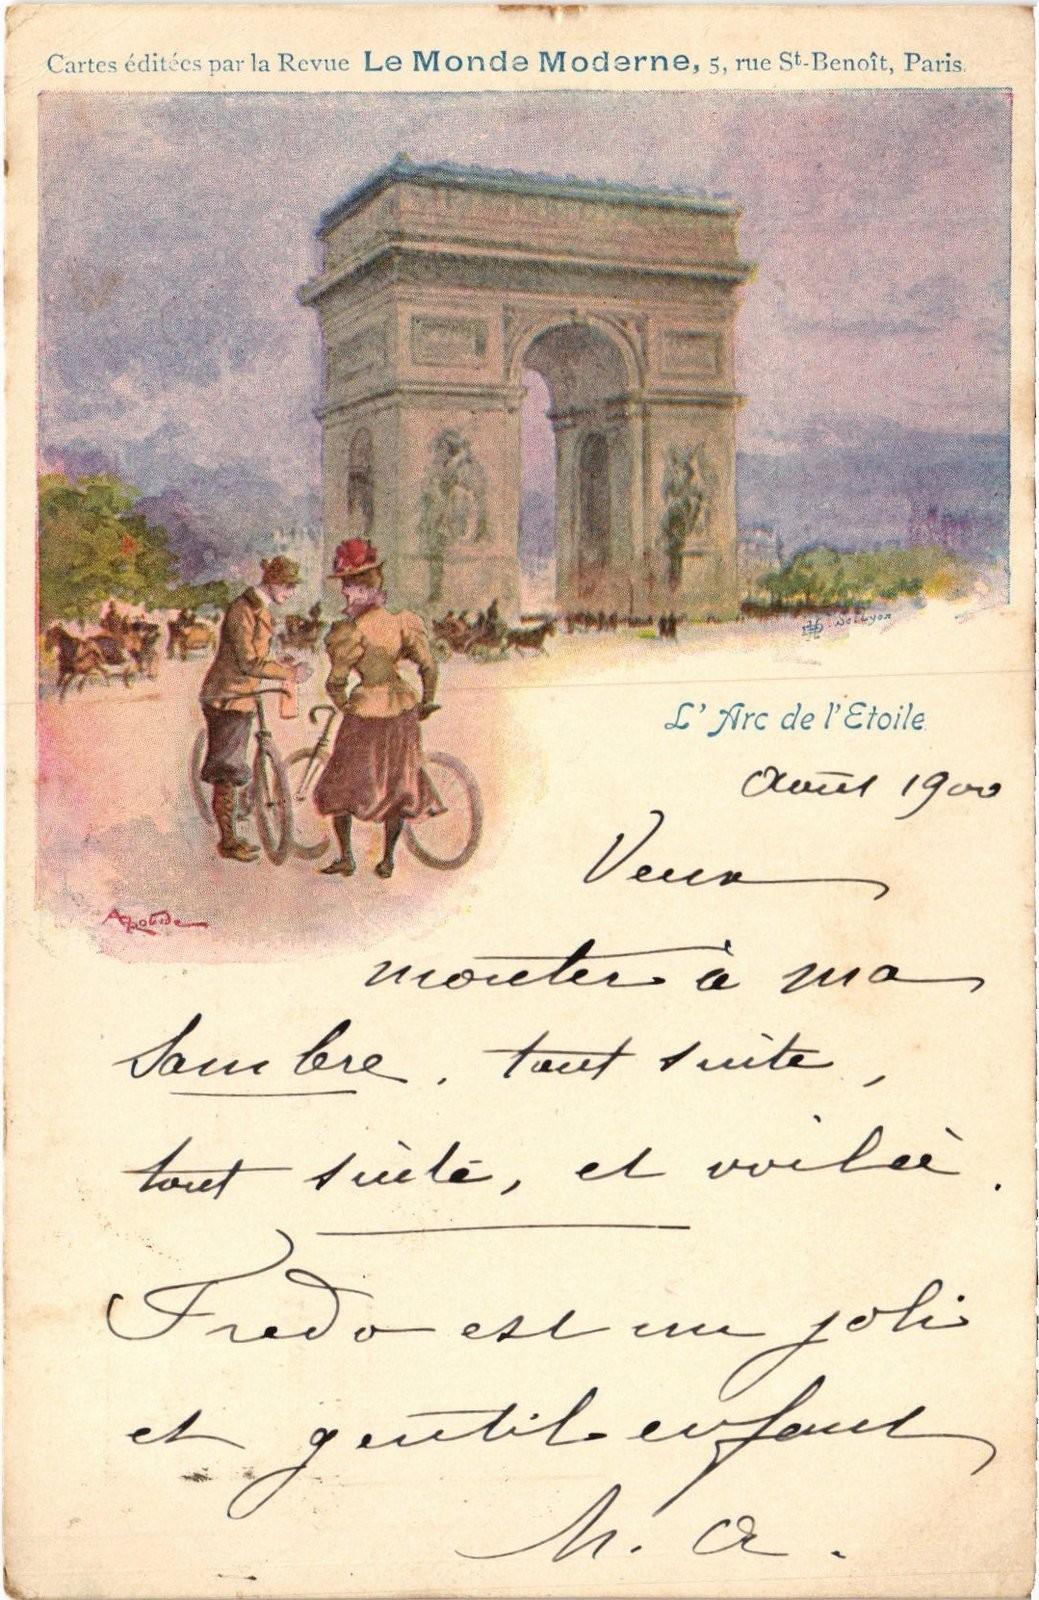 Cartes éditées par la Revue Le Monde Moderne, 5, rue St-Benoît, Paris.
L'Arc de l'Etoile
Août 1900
Veux
monter à ma
Sambre. tout suite,
tout suite, et voilà.
Fredo est un joli
et gentil enfant
A.